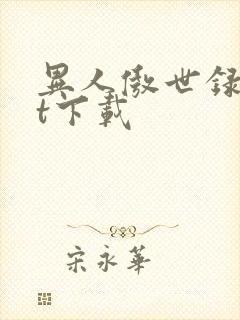 異人傲世録
t下載
宋永華